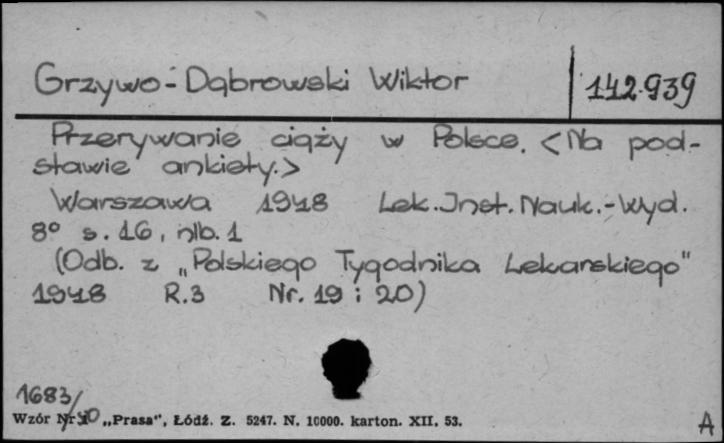 Grzywo-Dąbrowski Wiktor 142.939
Przerywanie ciąży w Polsce. <Na pod-
stawie ankiety.>
Warszawa 1948 Lek.Inst.Nauk.-Wyd.
8° s. 16, nlb. 1
(Odb. z „Polskiego Tygodnika Lekarskiego"
1948 R.3 Nr. 19 i 20)
1683/50
Wzór Nr „Prasa", Łódź. Z. 5247. N. 10000. karton. XII. 53.
A